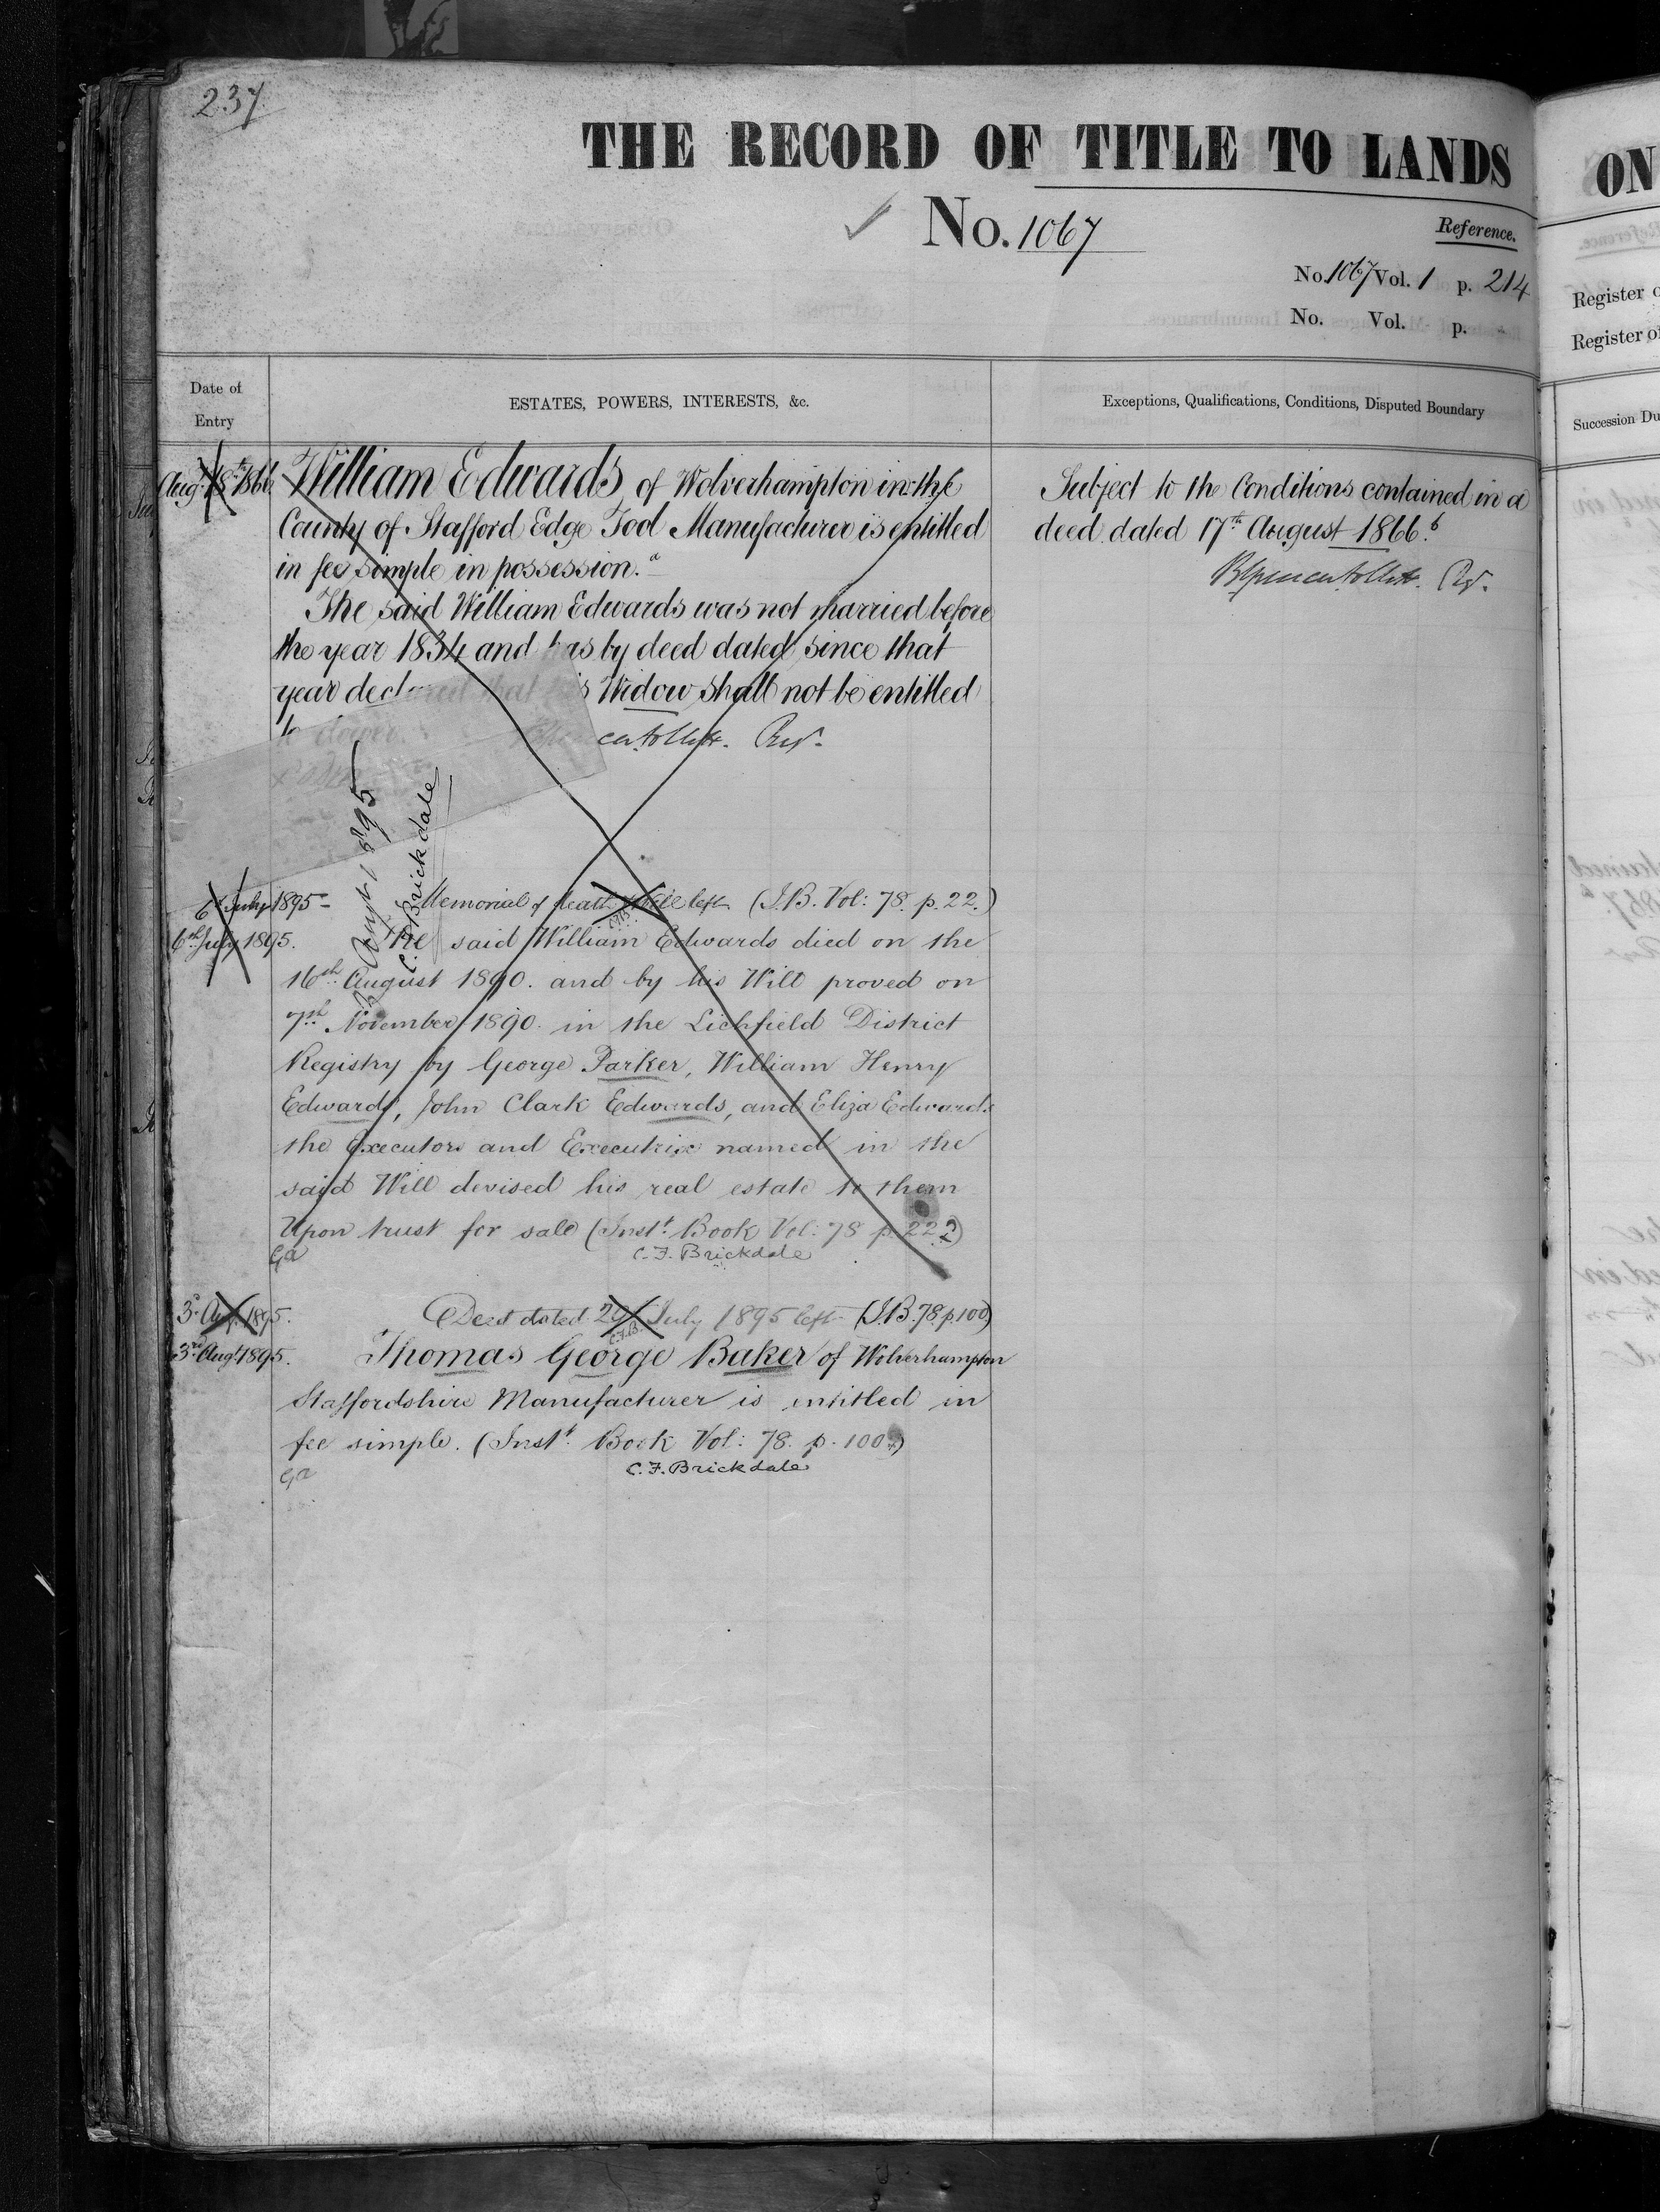 237
THE RECORD OF TITLE TO LANDS
No. 1067
Reference.
No. 1067 Vol. 1 p. 214
No. Vol. p.
Date of Entry
ESTATES, POWERS, INTERESTS, &c.
Exceptions, Qualifications, Conditions, Disputed Boundary
Aug. 18th 1866. William Edwards of Wolverhampton in the
County of Stafford Edge Tool Manufacturer is entitled
in fee simple in possession. a
The said William Edwards was not married before
the year 1834 and has by deed dated since that
year declared that his Widow shall not be entitled
to dower.
Subject to the Conditions contained in a
deed dated 17th August 1866. b
3 Augt 1895
C. F. Brickdale
6th July 1895 Memorial of death & Will left (I.B. Vol: 78. p. 22.)
C.F.B.
6th July 1895. The said William Edwards died on the
16th August 1890. and by his Will proved on
7th November 1890. in the Lichfield District
Registry by George Parker, William Henry
Edwards, John Clark Edwards, and Eliza Edwards
the Executors and Executrix named in the
said Will devised his real estate to them
Upon trust for sale (Instt. Book Vol: 78 p. 22)
Ga
C. F. Brickdale
3rd Aug. 1895. Deed dated 29 July 1895 left (I.B. 78. p 100)
C.F.B.
3rd Augt 1895. Thomas George Baker of Wolverhampton
Staffordshire Manufacturer is entitled in
fee simple. (Instt. Book Vol: 78. p. 100)
Ga
C. F. Brickdale
ON
Register o
Register of
Succession Du